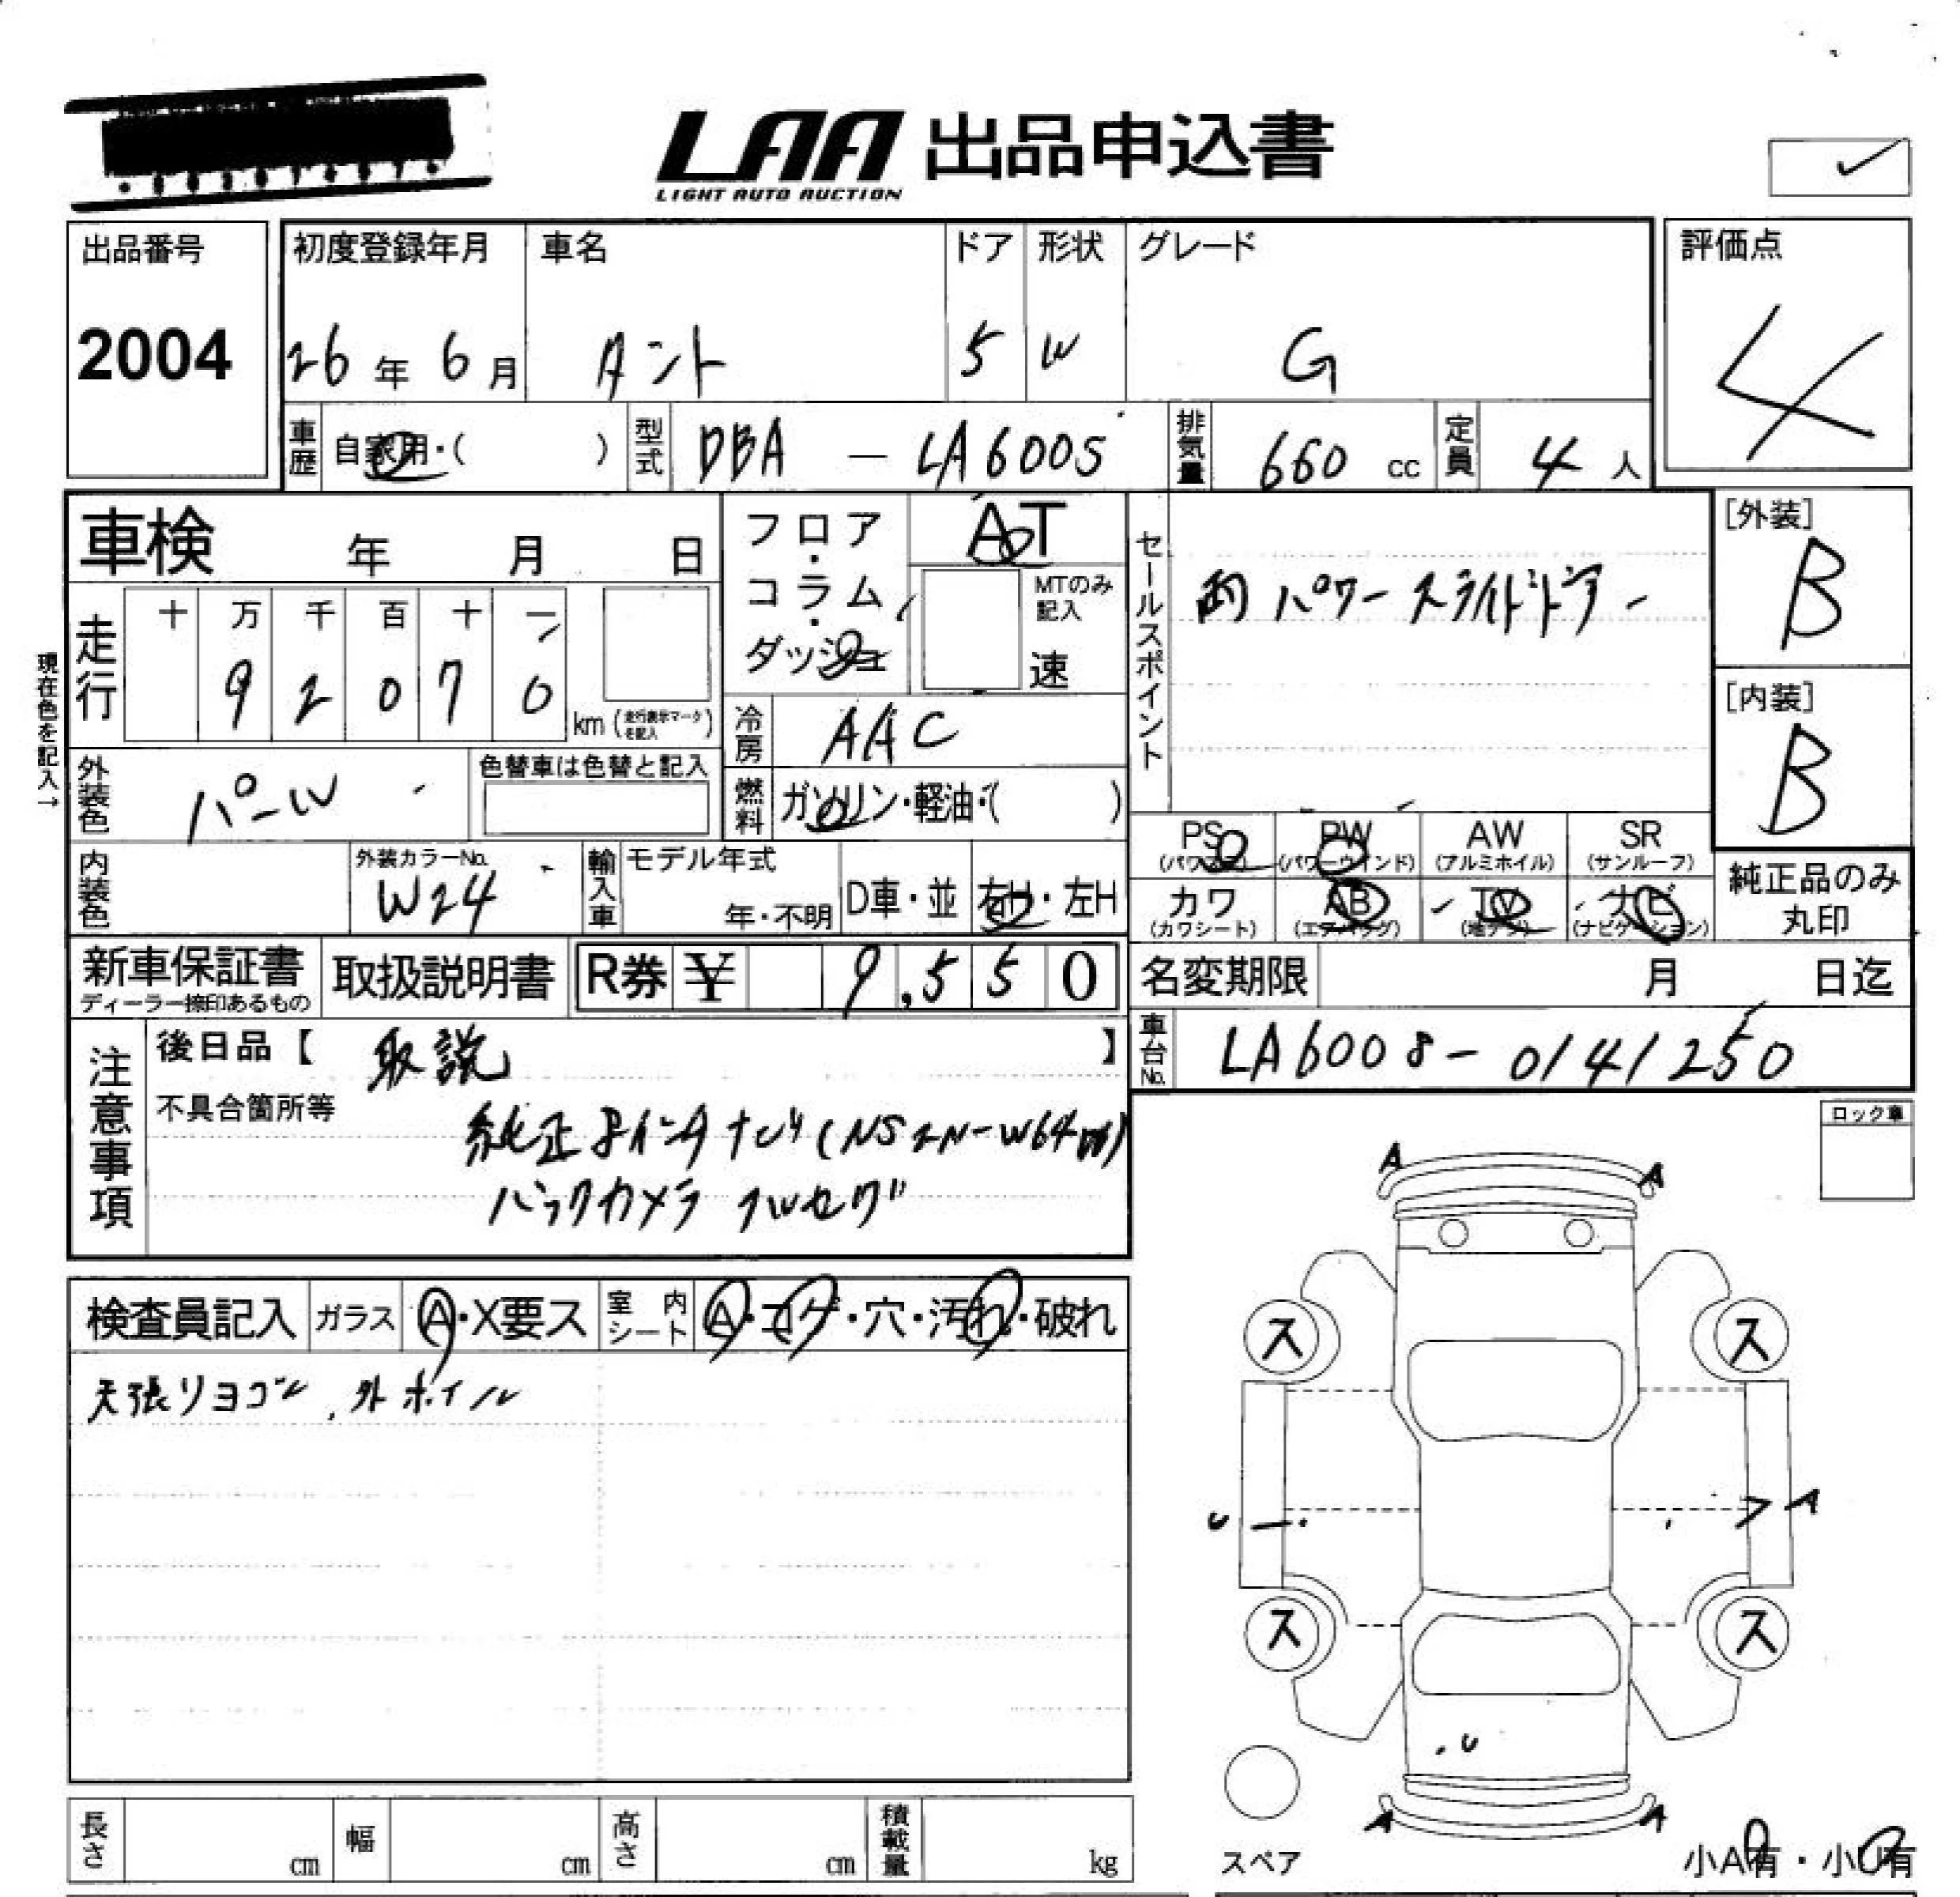 LAA 出品申込書
LIGHT AUTO AUCTION
出品番号
2004
初度登録年月
26年 6月
車名
タント
ドア
5
形状
W
グレード
G
評価点
4
車歴 自家用・( )
型式 DBA — LA600S
排気量 660 cc
定員 4 人
車検 年 月 日
フロア・コラム・ダッシュ
AT
MTのみ記入
速
セールスポイント
両パワースライドドアー
[外装]
B
[内装]
B
現在色を記入→
走行
十 万 千 百 十 一
9 2 0 7 0
km (走行表示マークを記入)
冷房 AAC
外装色 パール
色替車は色替と記入
燃料 ガソリン・軽油・( )
PS (パワステ) PW (パワーウインド) AW (アルミホイル) SR (サンルーフ)
カワ (カワシート) AB (エアバッグ) TV (地デジ) ナビ (ナビゲーション)
純正品のみ
丸印
内装色
外装カラーNo.
W24
輸入車
モデル年式
年・不明
D車・並
右H・左H
新車保証書
ディーラー捺印あるもの
取扱説明書
R券 ¥ 9,550
名変期限 月 日迄
車台No. LA600S-0141250
注意事項
後日品【 取説 】
不具合箇所等
純正8インチナビ(NSZN-W64D)
バックカメラ フルセグ
ロック車
検査員記入 ガラス A・X要ス 室内シート A・コゲ・穴・汚れ・破れ
天張りヨゴレ, 外ホイル
A A
ス ス
U A
ス ス
U
A A
スペア
小A有・小U有
長さ cm 幅 cm 高さ cm 積載量 kg